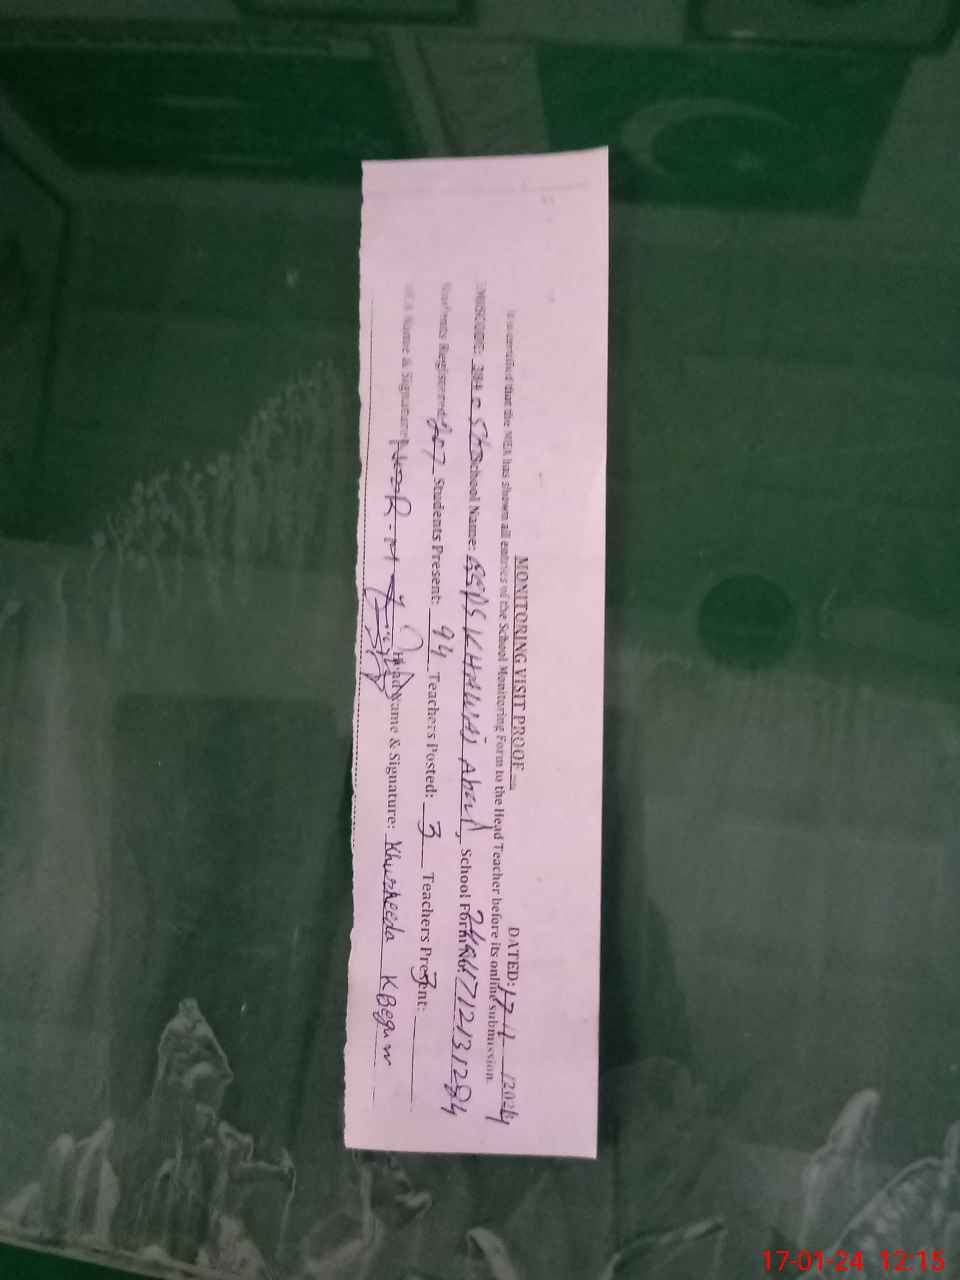 MONITORING VISIT PROOF
DATED: 17/1/2024
It is certified that the MEA has shown all entries of the School Monitoring Form to the Head Teacher before its online submission.
School Name: GGPS KHAWAJ Abad, School Form No:
Students Registered: 207 Students Present: 94 Teachers Posted: 3 Teachers Present: 3
MEA Name & Signature: Head Name & Signature: Khursheeda K Begum
17-01-24 12:15